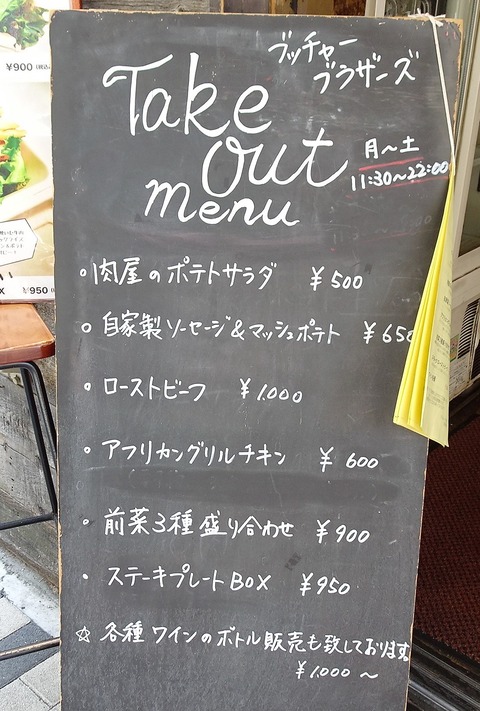 ブッチャー
ブラザーズ
Take
out
menu
月〜土
11:30〜22:00
・肉屋のポテトサラダ ¥500
・自家製ソーセージ&マッシュポテト ¥650
・ローストビーフ ¥1.000
・アフリカングリルチキン ¥600
・前菜3種盛り合わせ ¥900
・ステーキプレートBOX ¥950
☆各種ワインのボトル販売も致しております
¥1,000〜
¥900
¥950